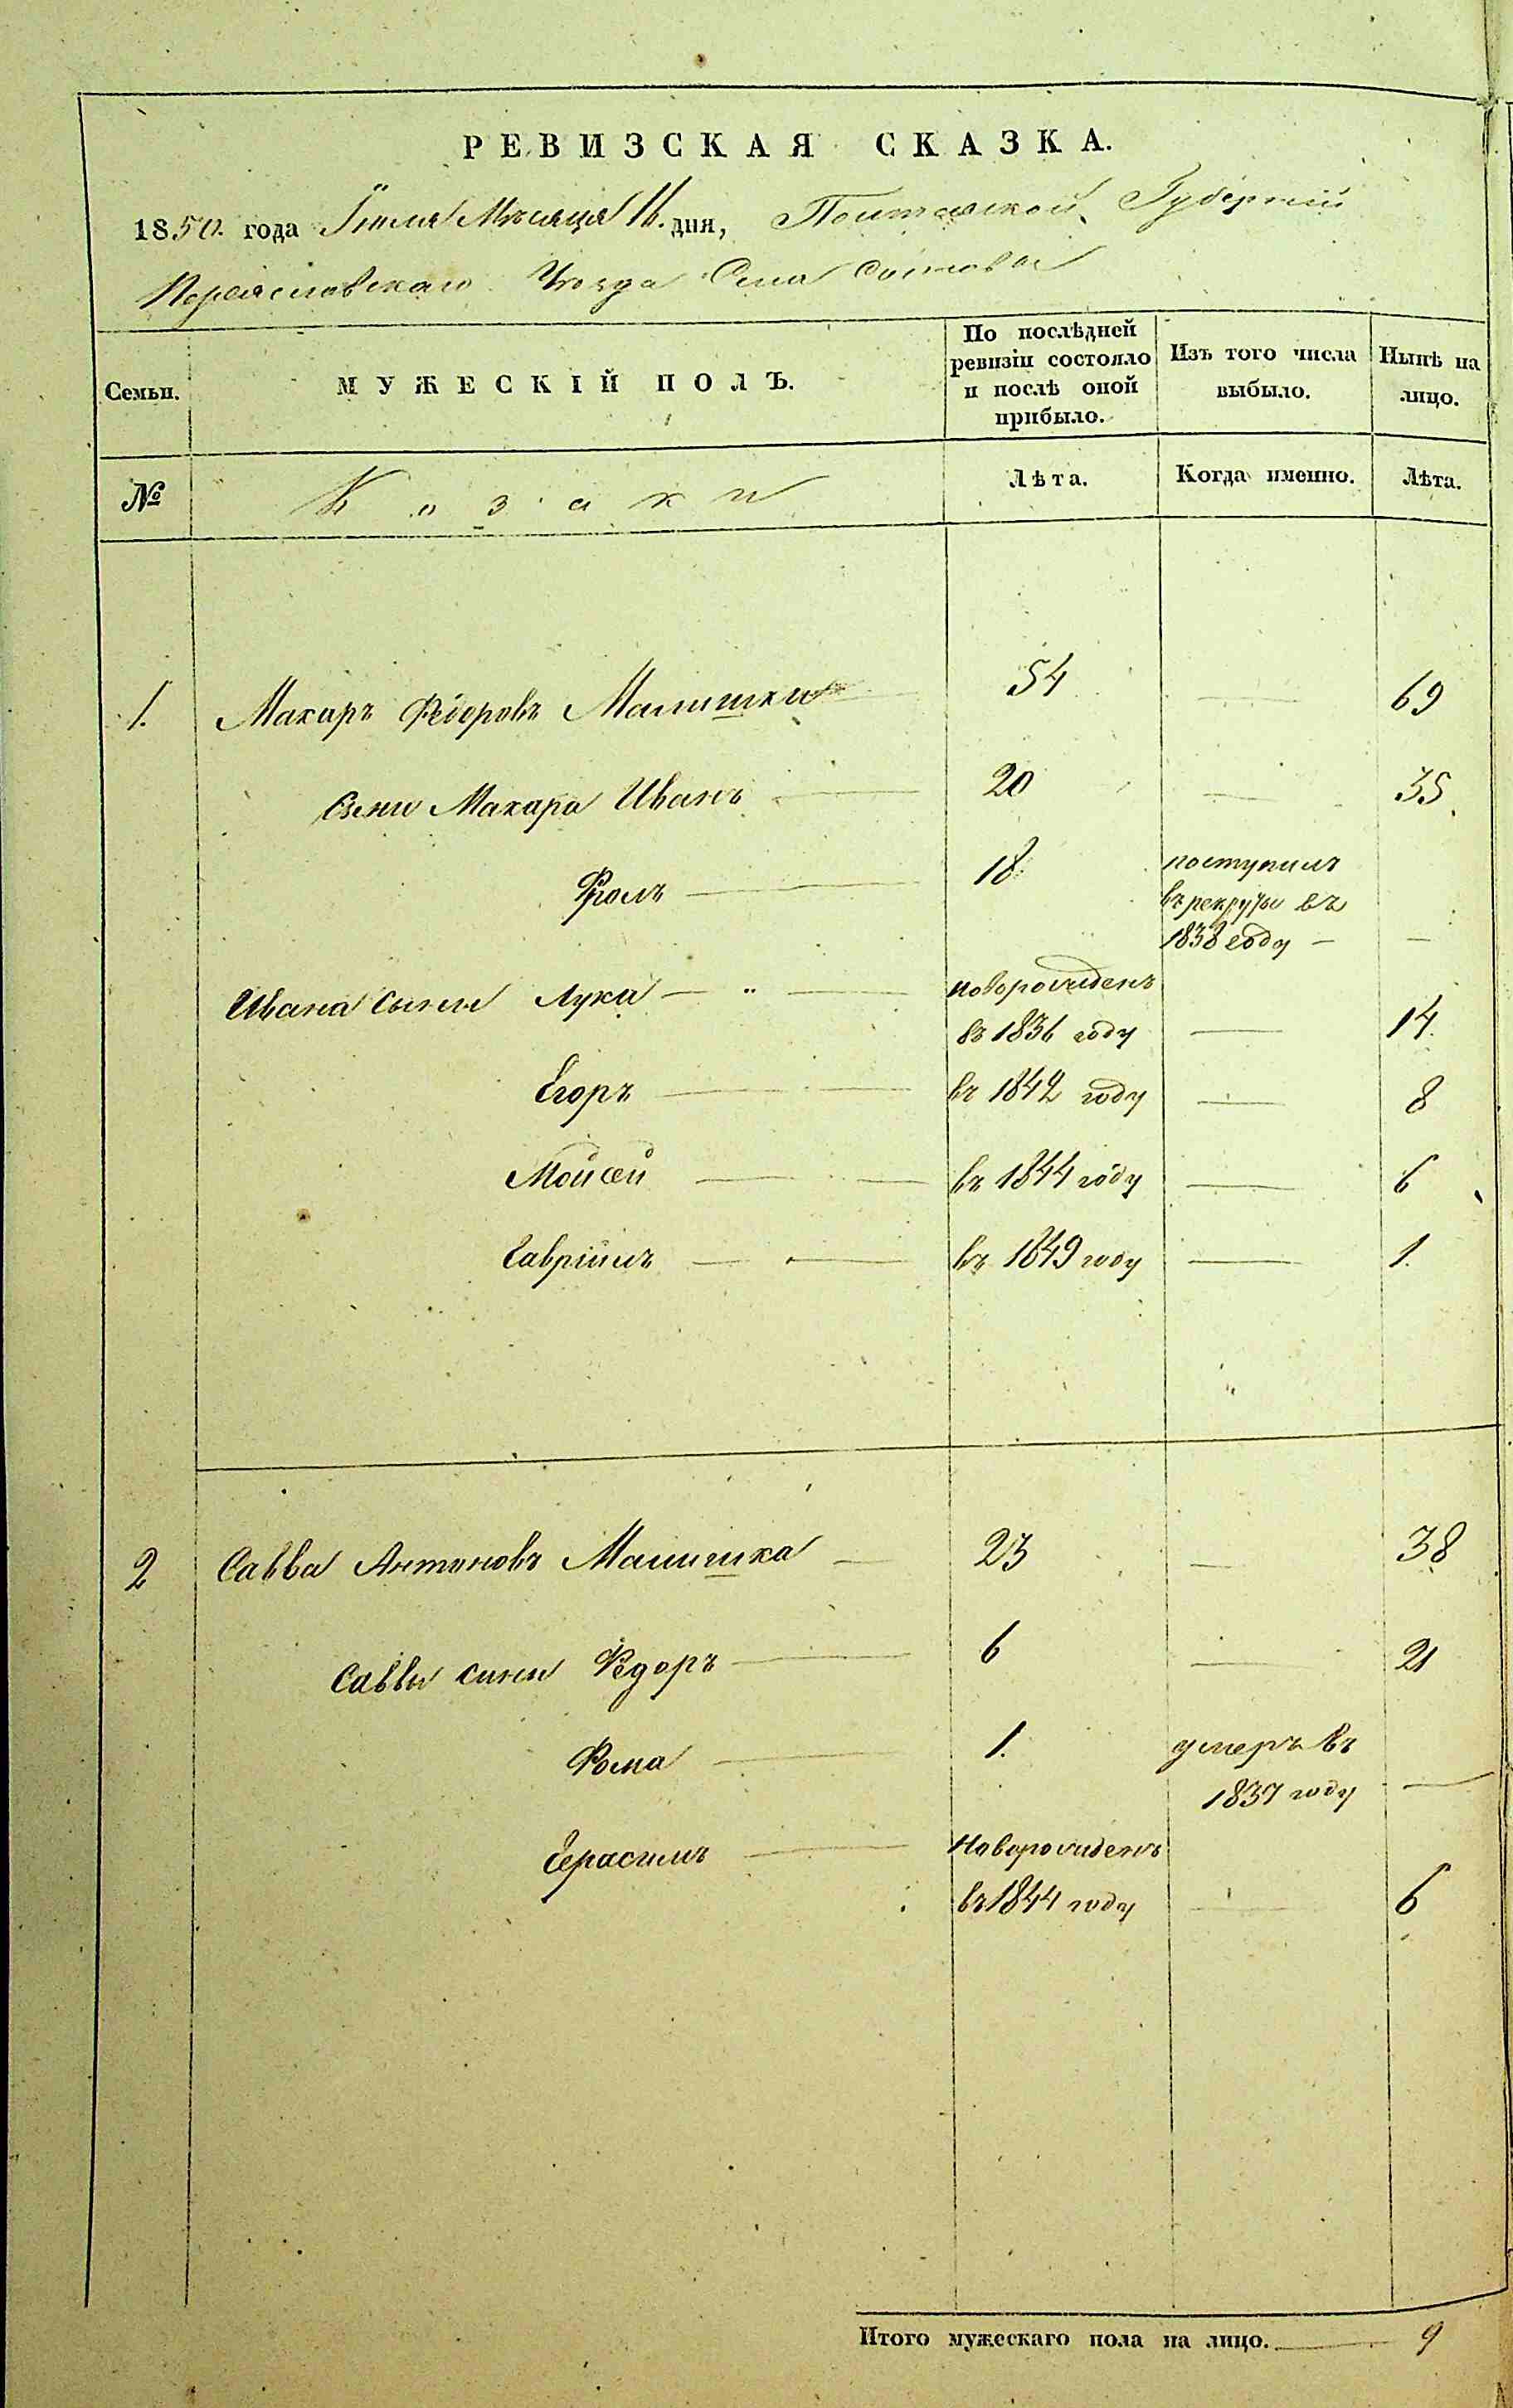 РЕВИЗСКАЯ СКАЗКА.
1850. года Іюля Мѣсяца 16. дня, Полтавской Губерніи
Переяславскаго Уѣзда Села
Семьи. МУЖЕСКІЙ ПОЛЪ. По послѣдней ревизіи состояло и послѣ оной прибыло. Изъ того числа выбыло. Нынѣ на лицо.
№ Козаки Лѣта. Когда именно. Лѣта.
1. Макаръ Ѳедоровъ Малишка 54 — 69
Сыни Макара Иванъ — 20 — 35.
Фролъ — 18 поступилъ
въ рекруты въ
1838 году — —
Ивана сыни Лука — " — новорожденъ
въ 1836 году — 14.
Егоръ — въ 1842 году — 8
Мойсей — въ 1844 году — 6
Гавріилъ — въ 1849 году — 1.
2 Савва Антоновъ Малишка — 23 — 38
Саввы сини Ѳедоръ — 6 — 21
Ѳома — 1. умеръ въ
1837 году —
Герасимъ — Новорожденъ
въ 1844 году — 6
Итого мужескаго пола на лицо. — 9